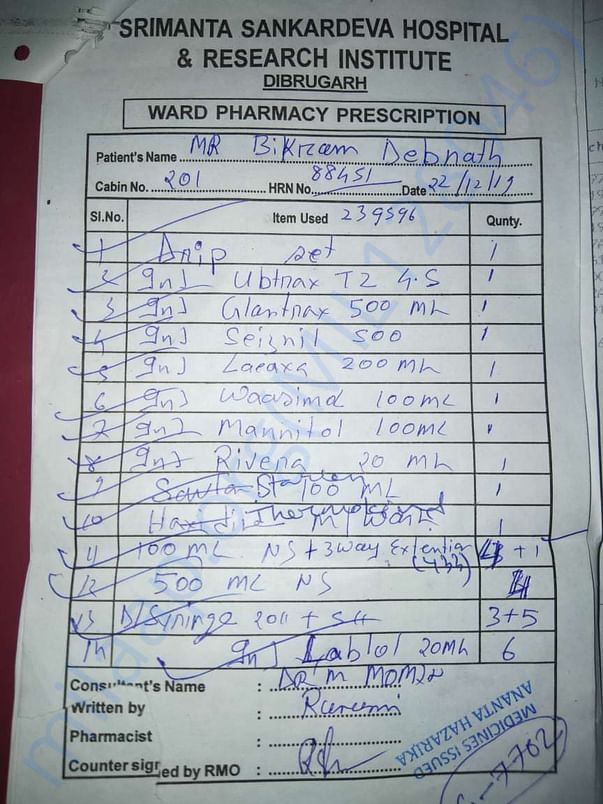 SRIMANTA SANKARDEVA HOSPITAL
& RESEARCH INSTITUTE
DIBRUGARH
WARD PHARMACY PRESCRIPTION
Patient's Name MR Bikram Debnath
Cabin No. 201 HRN No. 88451 Date 22/12/19
Sl.No. Item Used 239596 Qunty.
1 Drip set 1
2 Inj Ubtrax T2 4.5 1
3 Inj Glantrax 500 ML 1
4 Inj Seiznil 500 1
5 Inj Lacaxa 200 ML 1
6 Inj 100ML 1
7 Inj Mannitol 100ML 1
8 Inj Rivena 20 ML 1
9 100 ML 1
10 M/Wash 1
11 100 ML NS + 3way Extention + 1
12 500 ML NS
13 D/Syringe 3+5
14 Inj Lablol 20ML 6
Consultant's Name : DR M MOMIN
Written by :
Pharmacist :
Counter signed by RMO :
MEDICINES ISSUED
ANANTA HAZARIKA